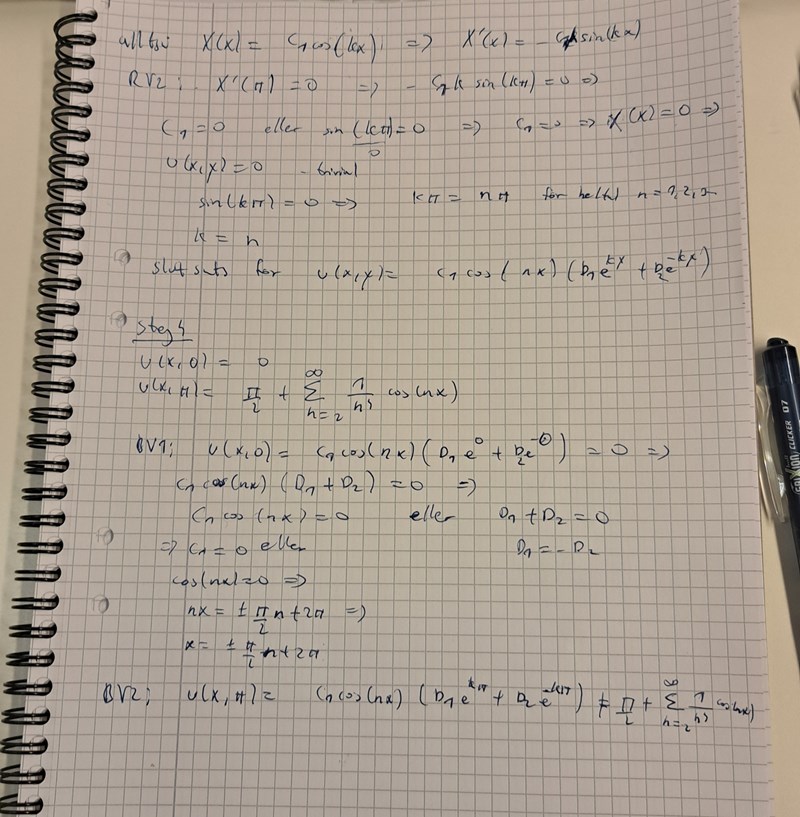 alltså X(x) = C₁cos(kx) => X'(x) = -C₁k sin(kx)
RV2: X'(π) = 0 => - C₁k sin(kπ) = 0 =>
C₁ = 0 eller sin(kπ) = 0 => C₁ = 0 => X(x) = 0 =>
0
U(x,y) = 0 - trivial
sin(kπ) = 0 => kπ = nπ for heltal n = 1, 2, 3
k = n
Slutsats for u(x,y) = C₁ cos(nx) (D₁e^{ky} + D₂e^{-ky})
Steg 4
U(x,0) = 0
U(x,π) = π/2 + ∑_{n=2}^{∞} 1/n⁴ cos(nx)
BV1: U(x,0) = C₁cos(nx) (D₁e⁰ + D₂e^{-0}) = 0 =>
C₁ cos(nx) (D₁ + D₂) = 0 =>
C₁ cos(nx) = 0 eller D₁ + D₂ = 0
=> C₁ = 0 eller D₁ = - D₂
cos(nx) = 0 =>
nx = ± π/2 n + 2π =>
x = ± π/2 n + 2π
BV2: U(x,π) = C₁cos(nx) (D₁e^{kπ} + D₂e^{-kπ}) ≠ π/2 + ∑_{n=2}^{∞} 1/n⁴ cos(nx)
CLICKER 07